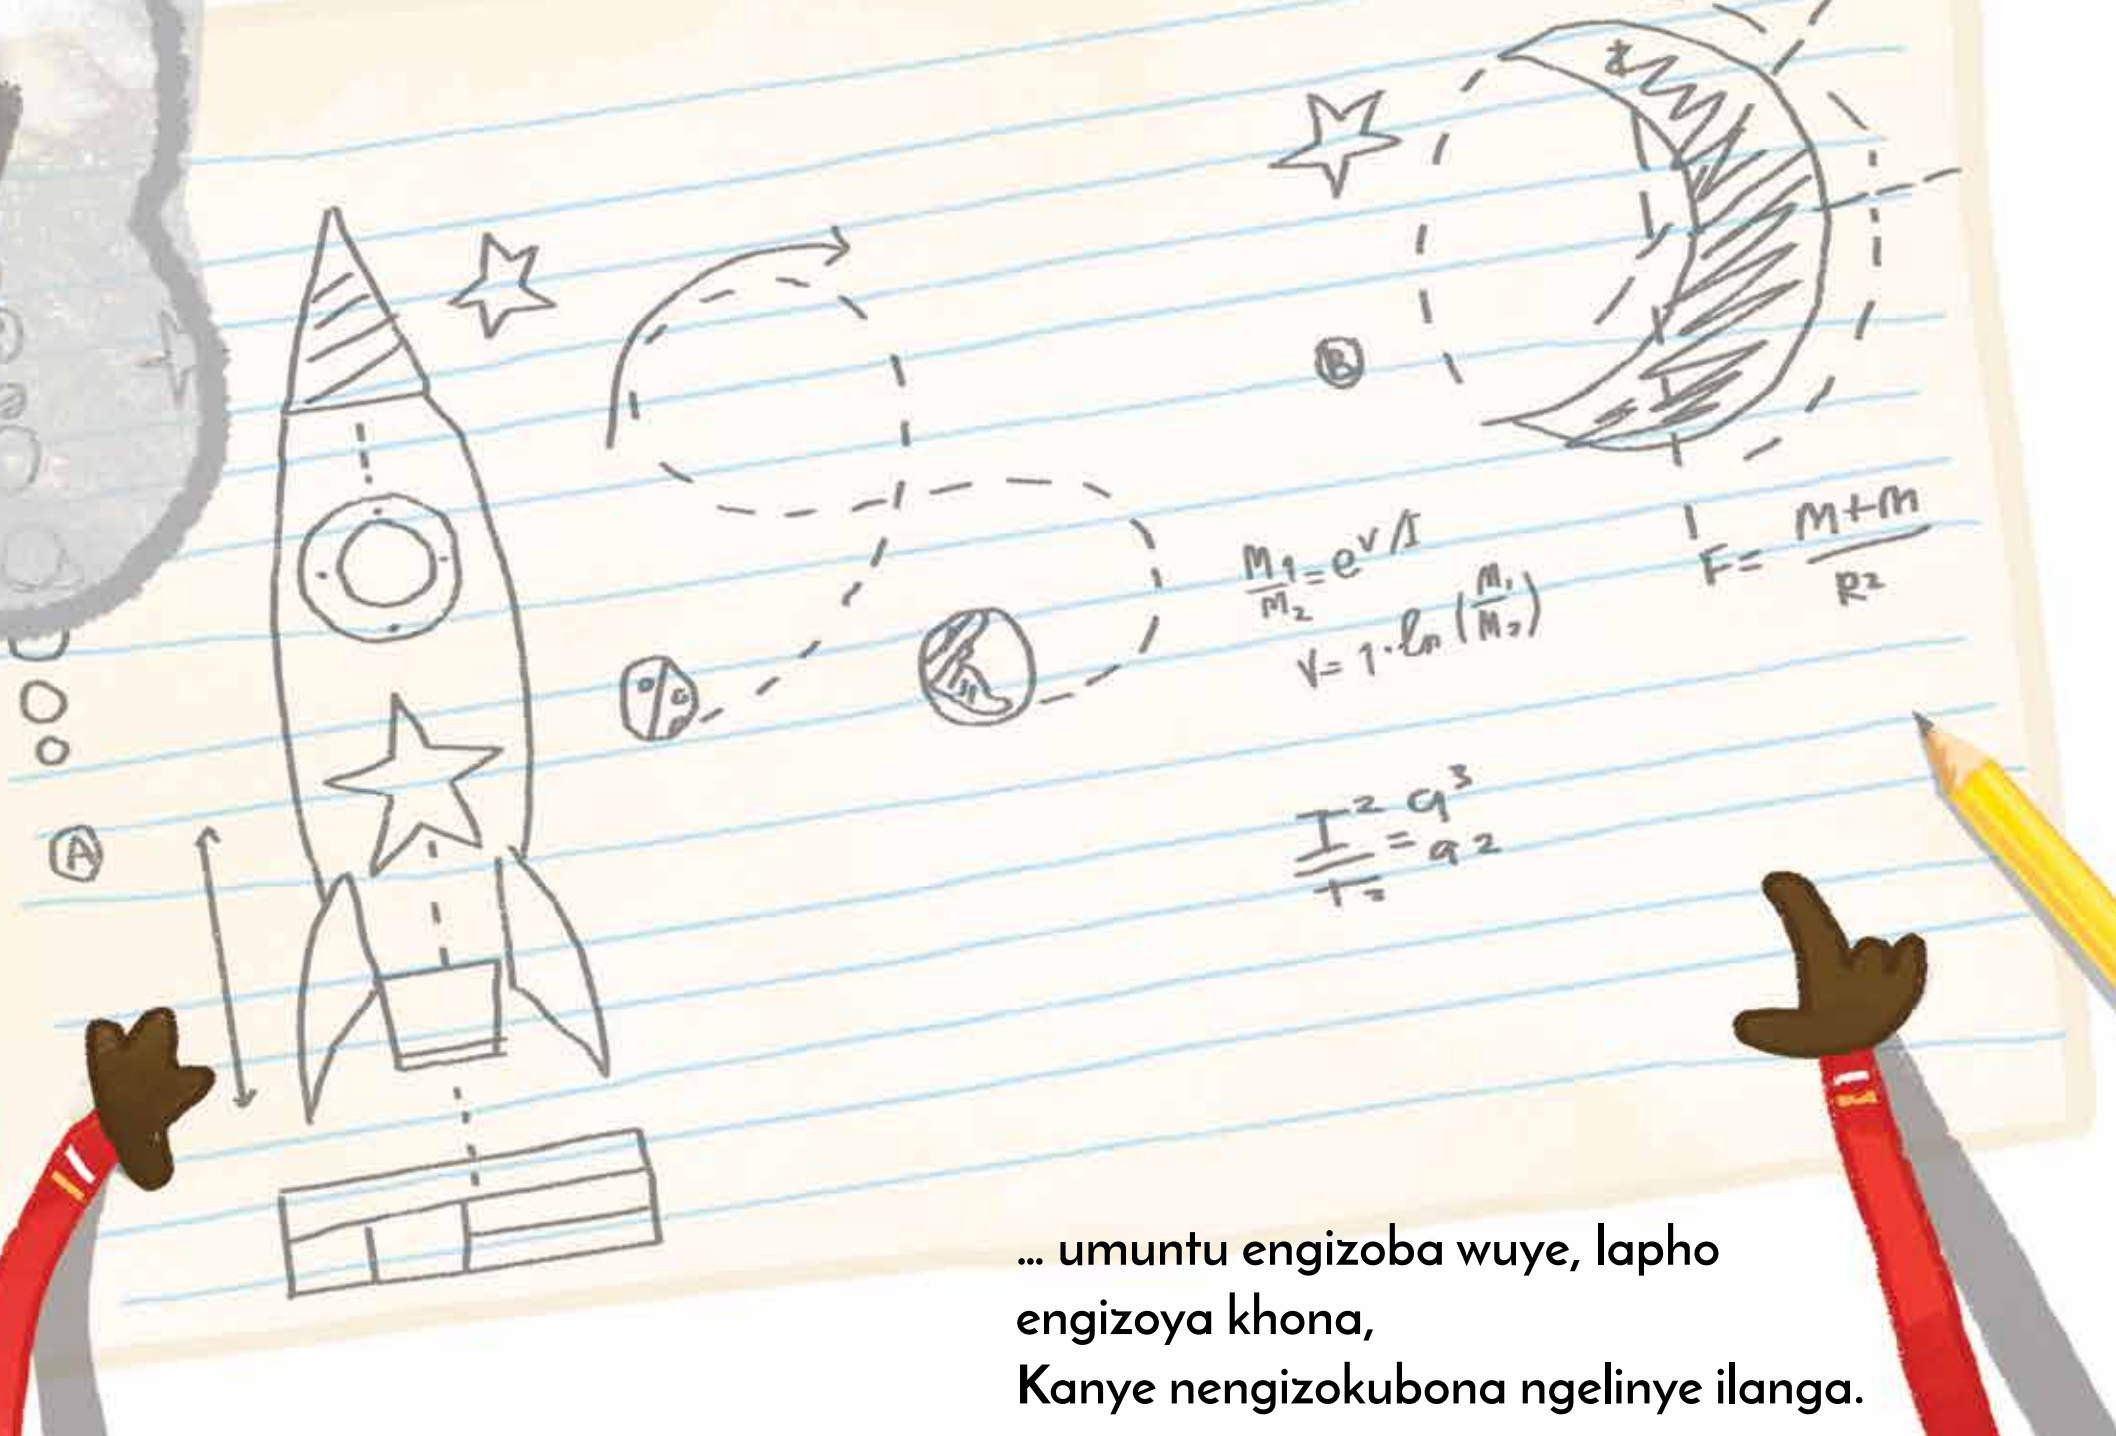 B
M1/M2 = e^V/I
V= 1·ln (M1/M2)
F= M+M/R2
A
... umuntu engizoba wuye, lapho
engizoya khona,
Kanye nengizokubona ngelinye ilanga.